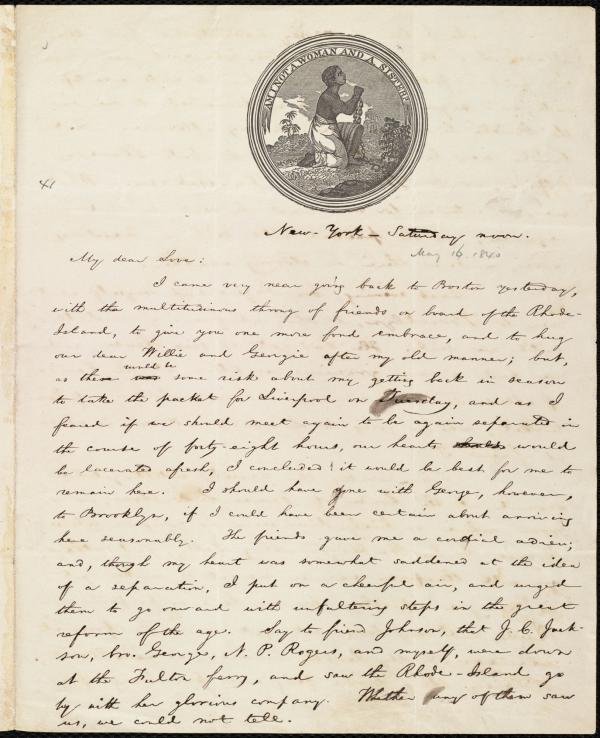 AM I NOT A WOMAN AND A SISTER?
41
New-York - Saturday noon.
May 16, 1840
My dear Love:
I came very near going back to Boston yesterday,
with the multitudinous throng of friends on board of the Rhode-
Island, to give you one more fond embrace, and to hug
our dear Willie and Georgie after my old manner; but,
would be
as there was some risk about my getting back in season
to take the packet for Liverpool on Tuesday, and as I
feared if we should meet again to be again separated in
the course of forty-eight hours, our hearts would
be lacerated afresh, I concluded it would be best for me to
remain here. I should have gone with George, however,
to Brooklyn, if I could have been certain about arriving
here seasonably. The friends gave me a cordial adieu;
and, though my heart was somewhat saddened at the idea
of a separation, I put on a cheerful air, and urged
them to go onward with unfaltering steps in the great
reform of the age. Say to friend Johnson, that J. C. Jack-
son, bro. George, N. P. Rogers, and myself, were down
at the Fulton ferry, and saw the Rhode-Island go
by with her glorious company. Whether any of them saw
us, we could not tell.